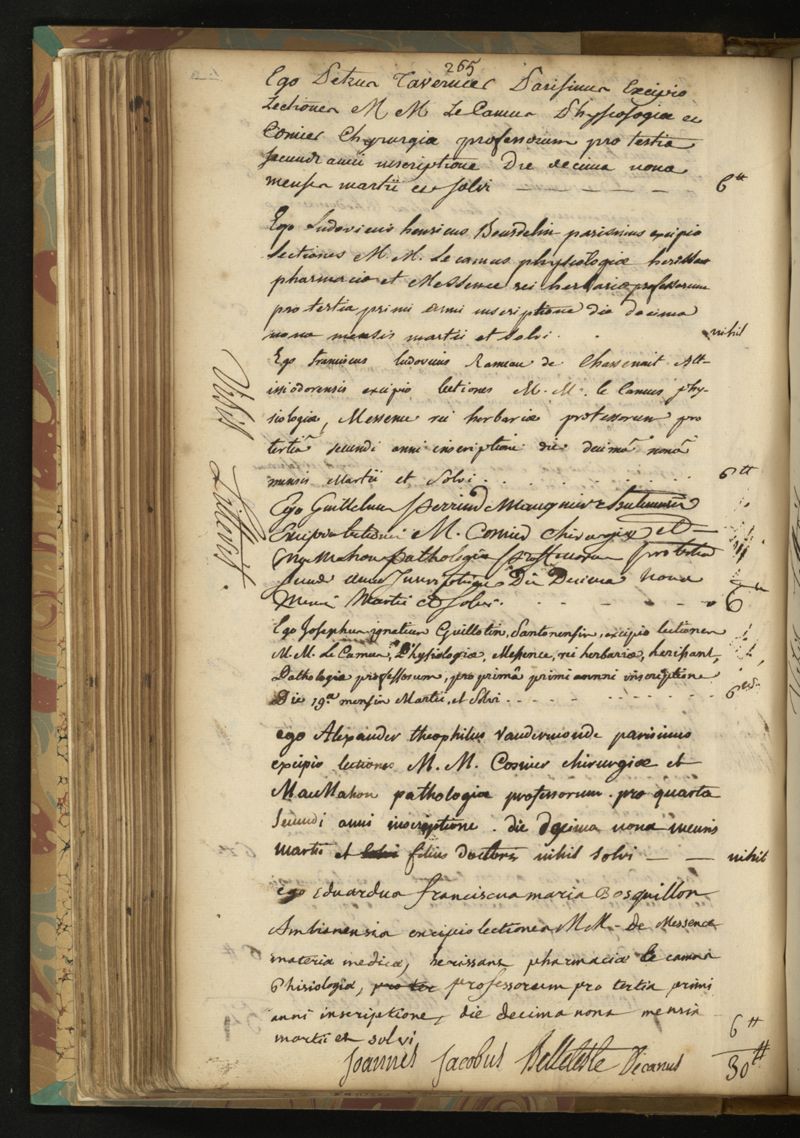 265
Ego Petrus Tavernier Parisinus Excipio
Lectiones M M Le Camus Physiologiæ et
Comier Chyrurgiæ professorum pro tertia
secundi annii inscriptione Die decima nona
mensis martii et solvi — — — — — 6 ₶
Ego Ludovicus henricus Bourdelin parisinus excipio
lectiones M. M. le camus physiologiæ herissant
pharmaciæ et Messence rei herbariæ professorum
pro tertia primi anni inscriptione die decima
nona mensis martii et solvi . . nihil
Ego franciscus ludovicus Rameau de Chassenait Alt-
issiodorensis excipio lectiones M. M. le Camus phy-
siologiæ, Messence rei herbariæ professorum pro
tertiâ secundi anni inscriptione die decimâ nonâ
mensis Martii et Solvi . . . . . . . . . . 6 ₶
Ego Guillelmus
Excipio lectiones M. Comier chirurgiæ et
Mac Mahon pathologiæ professorum pro tertia
secundi anni Inscriptione Die Decima Nona
Mensis Martii et Solvi . . . . . . 6 ₶
Ego Josephus ignatius Guillotin, Santonensis, excipio lectiones
M. M. le Camus, Physiologiæ, Messence, rei herbariæ, herissant,
Pathologiæ professorum, pro primâ primi annni inscriptione
Die 19.ª mensis Martii, et Solvi . . . . . . . . 6
ego Alexander theophilus Vandermonde parisinus
excipio lectiones M. M. Cosnier chirurgiæ et
MacMahon pathologiæ professorum . pro quarta
secundi anni inscriptione . die decima nona mensis
martii et solvi filius doctoris nihil solvi — — nihil
ego Eduardus franciscus maria Bosquillon
Ambianensis excipio lectiones M M - De Messence
materiæ medicæ, herissant pharmaciæ le camus
Phisiologiæ, pro ter professorum pro tertia primi
anni inscriptione, die decima nona mensis
martii et solvi 6 ₶
Joannes Jacobus Belleteste Decanus 30 ₶
Visis